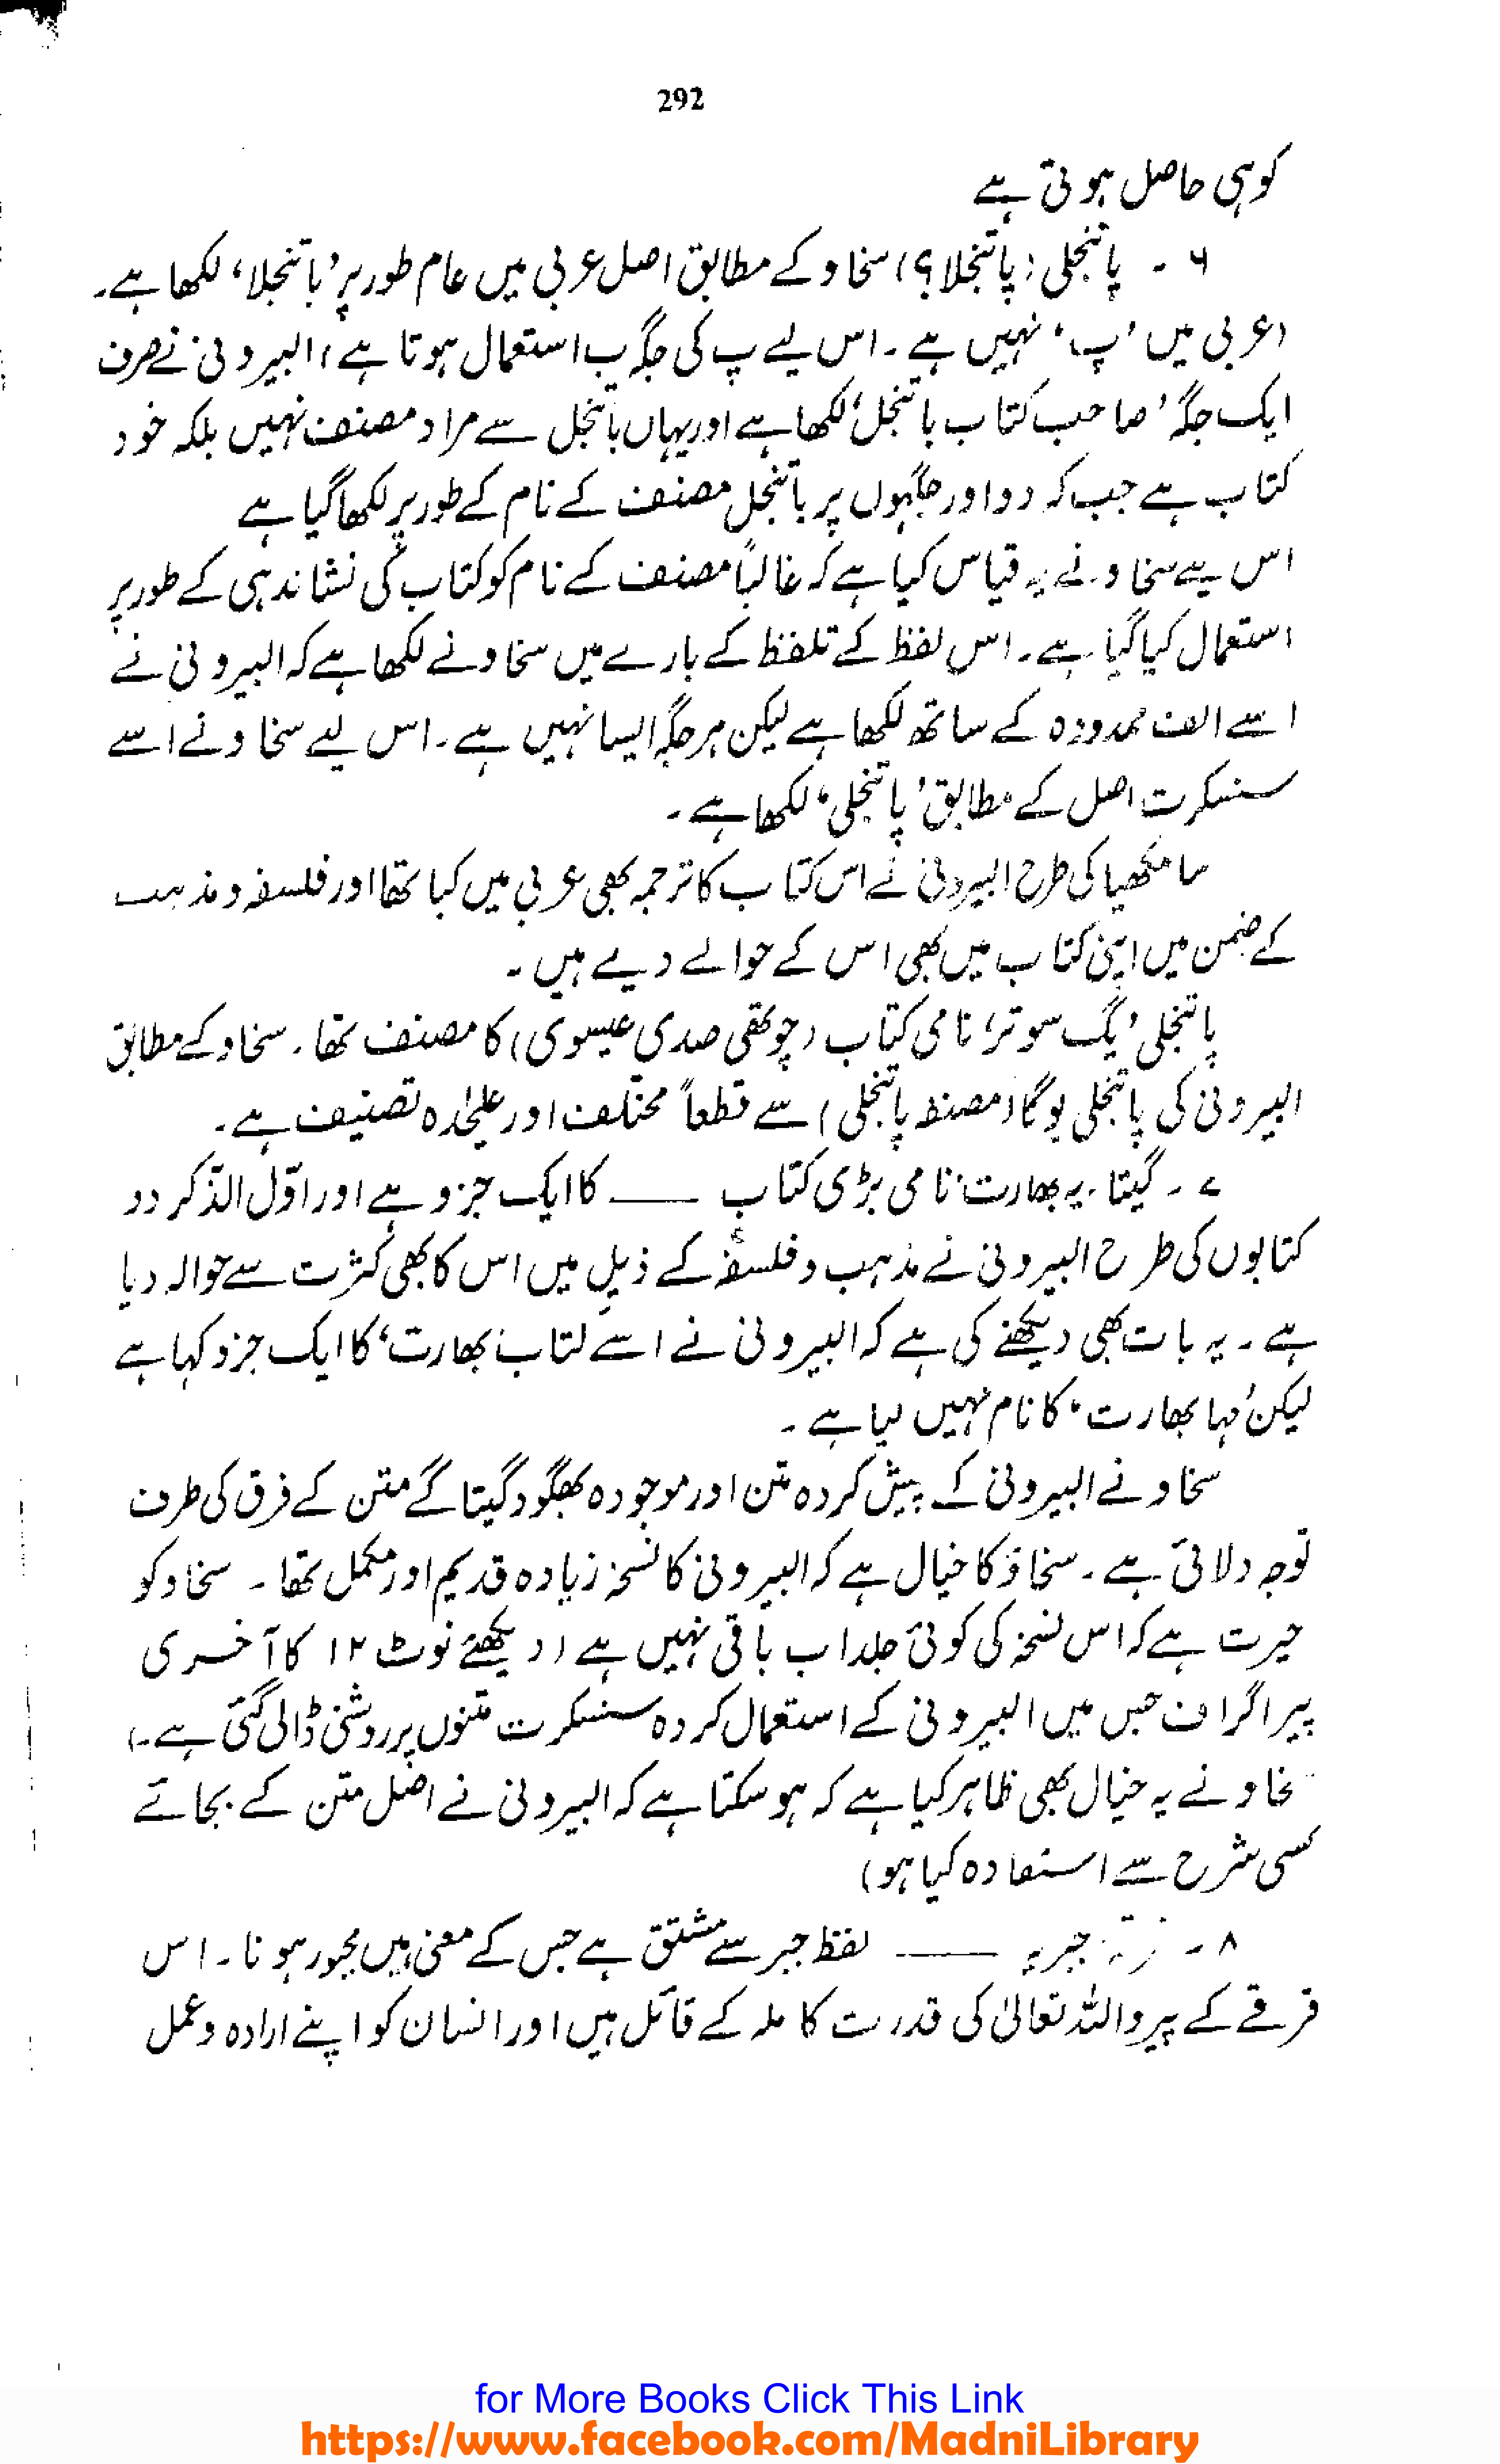 292
کو ہی حاصل ہوتی ہے
۶ ۔ پاتنجلی (پاتنجلا؟) سخاو کے مطابق اصل عربی میں عام طور پر ’باتنجلا‘ لکھا ہے۔
(عربی میں ’پ‘ نہیں ہے ۔ اس لیے پ کی جگہ ب استعمال ہوتا ہے) البیرونی نے صرف
ایک جگہ ’صاحب کتاب باتنجل‘ لکھا ہے اور یہاں باتنجل سے مراد مصنف نہیں بلکہ خود
کتاب ہے جب کہ دو اور جگہوں پر باتنجل مصنف کے نام کے طور پر لکھا گیا ہے
اس لیے سخاو نے یہ قیاس کیا ہے کہ غالباً مصنف کے نام کو کتاب کی نشاندہی کے طور پر
استعمال کیا گیا ہے ۔ اس لفظ کے تلفظ کے بارے میں سخاو نے لکھا ہے کہ البیرونی نے
اسے الف ممدودہ کے ساتھ لکھا ہے لیکن ہر جگہ ایسا نہیں ہے ۔ اس لیے سخاو نے اسے
سنسکرت اصل کے مطابق ’پاتنجلی‘ لکھا ہے ۔
سامکھیا کی طرح البیرونی نے اس کتاب کا ترجمہ بھی عربی میں کیا تھا اور فلسفہ و مذہب
کے ضمن میں اپنی کتاب میں بھی اس کے حوالے دیے ہیں ۔
پاتنجلی ’یگ سوتر‘ نامی کتاب (چوتھی صدی عیسوی) کا مصنف تھا ۔ سخاو کے مطابق
البیرونی کی پاتنجلی یوگا (مصنفہ پاتنجلی) سے قطعاً مختلف اور علیٰحدہ تصنیف ہے ۔
۷ ۔ گیتا ۔ یہ بھارت نامی بڑی کتاب ــــ کا ایک جزو ہے اور اوّل الذّکر دو
کتابوں کی طرح البیرونی نے مذہب و فلسفہ کے ذیل میں اس کا بھی کثرت سے حوالہ دیا
ہے ۔ یہ بات بھی دیکھنے کی ہے کہ البیرونی نے اسے کتاب بھارت‘ کا ایک جزو کہا ہے
لیکن ’مہا بھارت‘ کا نام نہیں لیا ہے ۔
سخاو نے البیرونی کے پیش کردہ متن اور موجودہ بھگود گیتا کے متن کے فرق کی طرف
توجہ دلائی ہے ۔ سخاؤ کا خیال ہے کہ البیرونی کا نسخہ زیادہ قدیم اور مکمل تھا ۔ سخاو کو
حیرت ہے کہ اس نسخہ کی کوئی جلد اب باقی نہیں ہے (دیکھئے نوٹ ۱۲ کا آخری
پیراگراف جس میں البیرونی کے استعمال کردہ سنسکرت متنوں پر روشنی ڈالی گئی ہے۔)
سخاو نے یہ خیال بھی ظاہر کیا ہے کہ ہو سکتا ہے کہ البیرونی نے اصل متن کے بجائے
کسی شرح سے استفادہ کیا ہو)
۸ ۔ جبریہ ــــ لفظ جبر سے مشتق ہے جس کے معنی ہیں مجبور ہونا ۔ اس
فرقے کے پیرو اللہ تعالیٰ کی قدرت کاملہ کے قائل ہیں اور انسان کو اپنے ارادہ و عمل
for More Books Click This Link
https://www.facebook.com/MadniLibrary